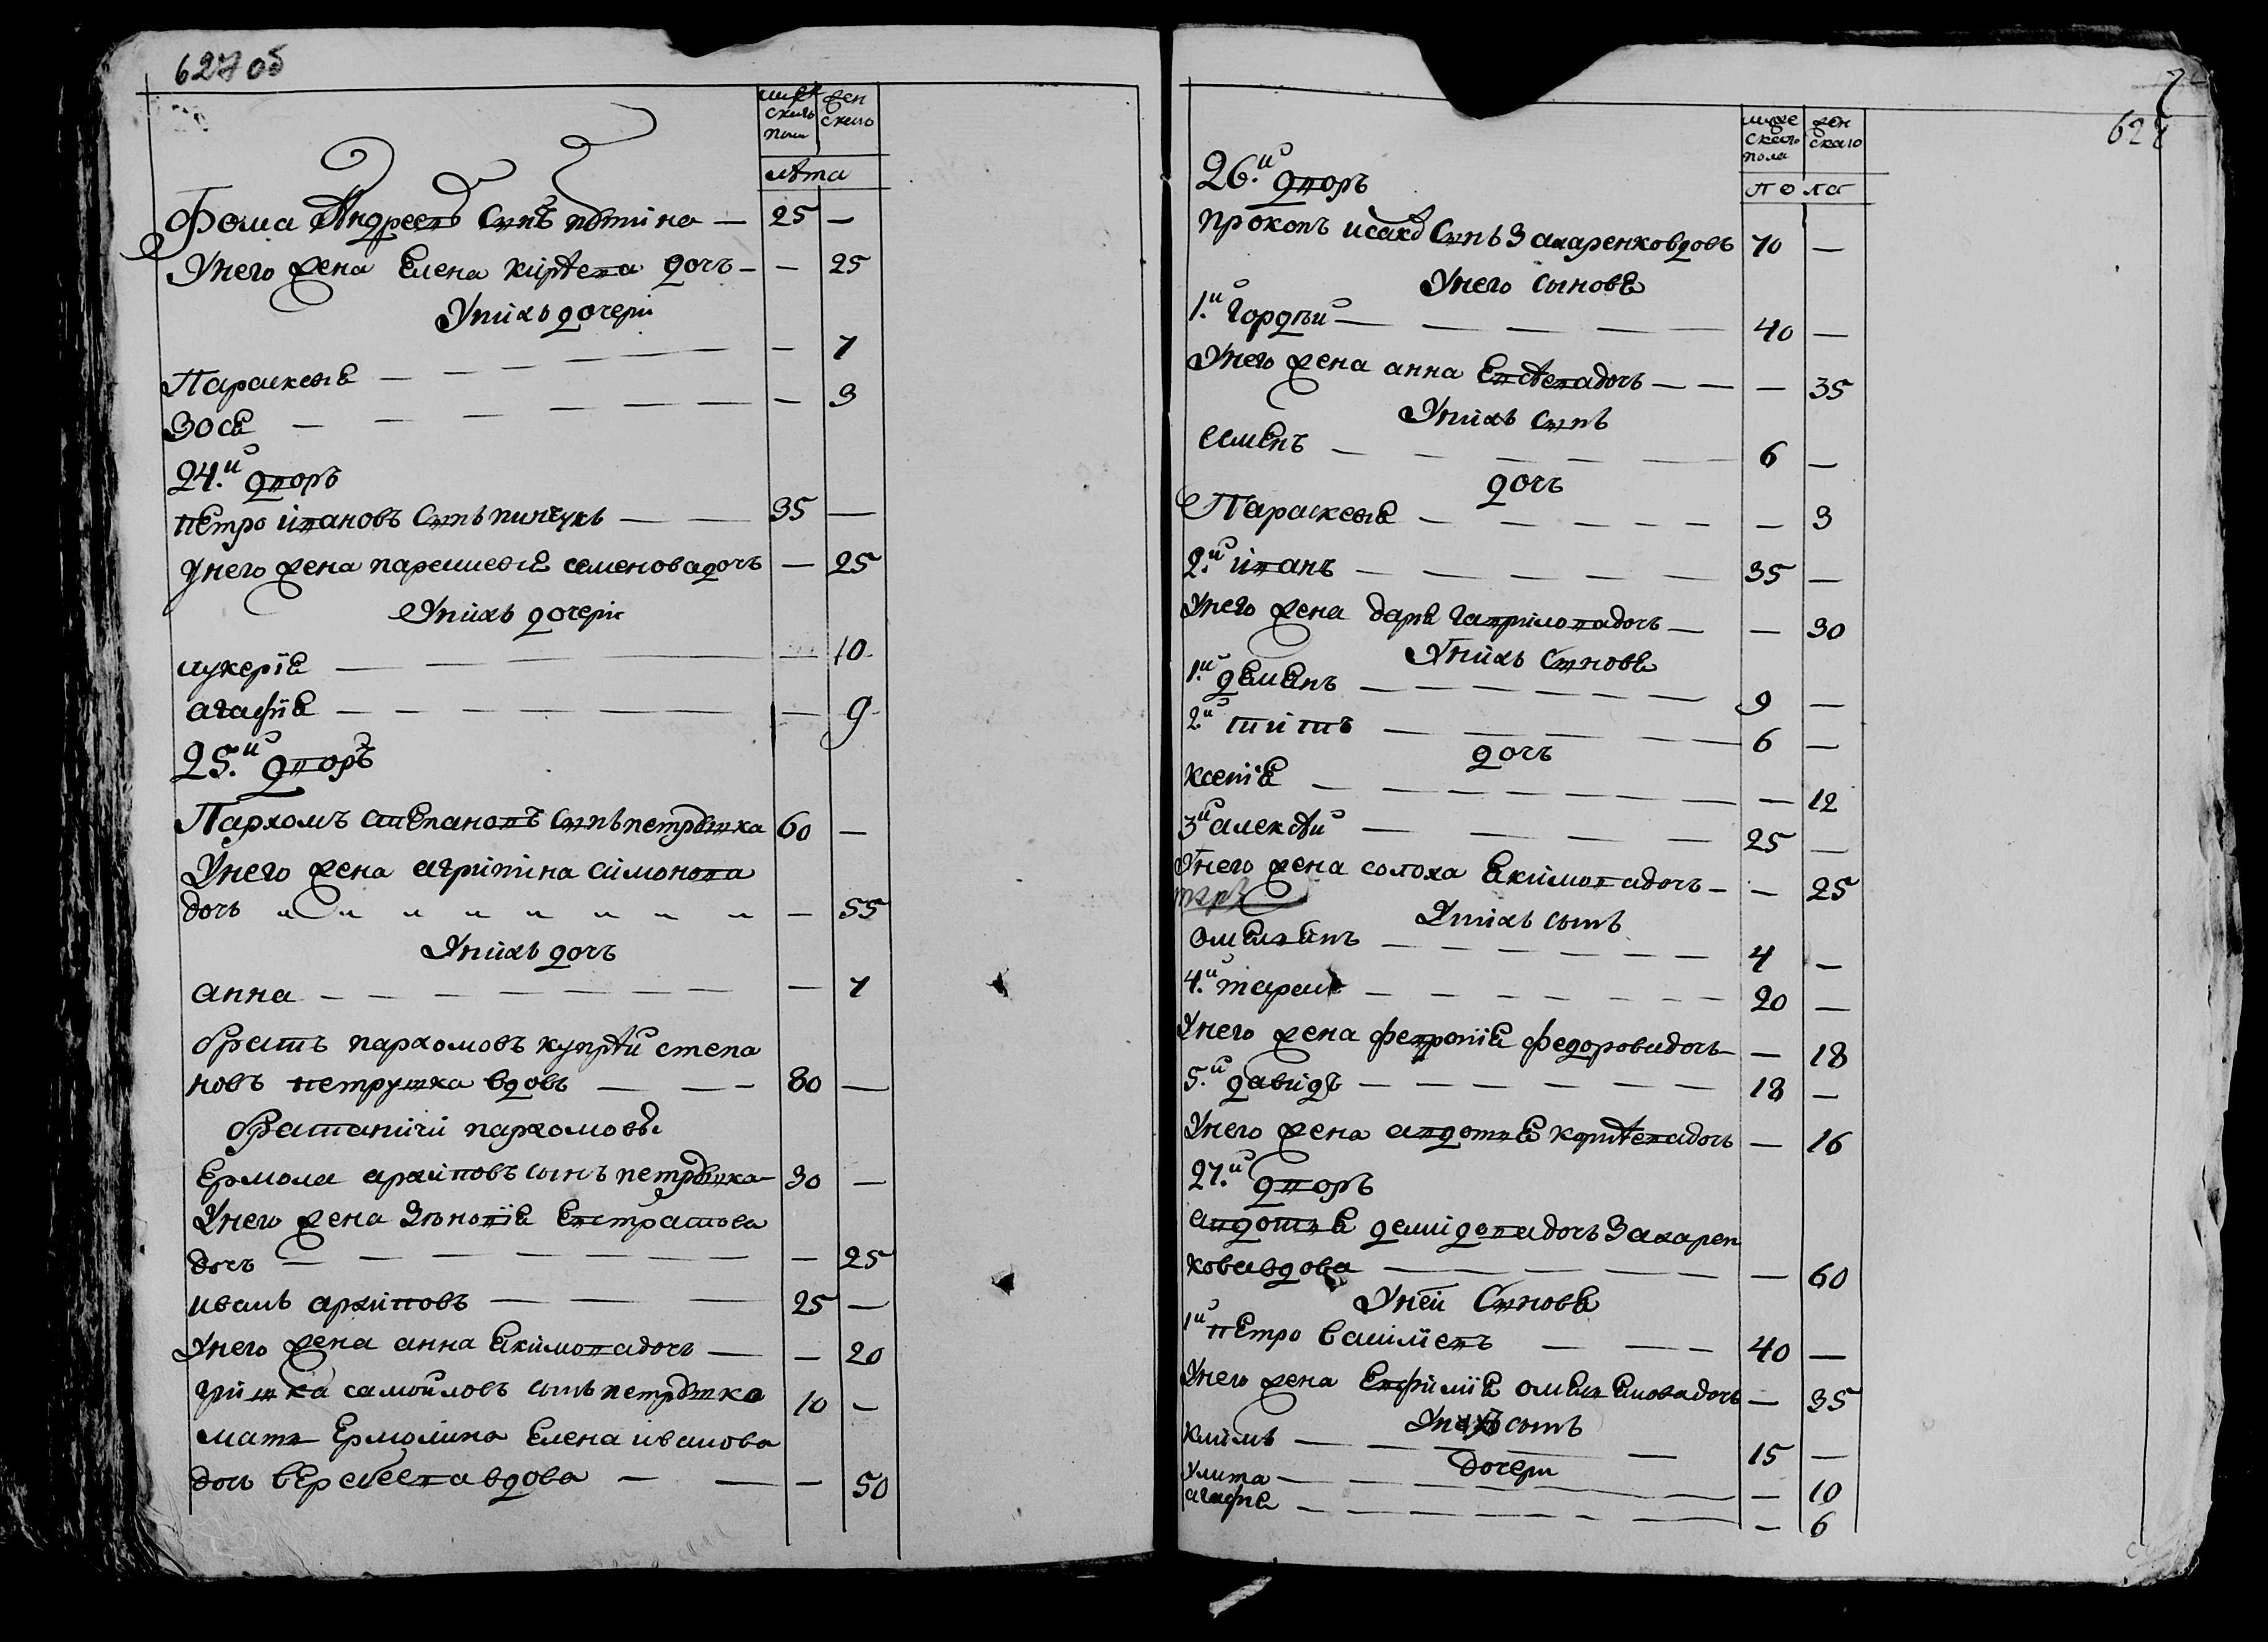 627 об
мужскаго пола женскаго
лѣта
Фома Андреевъ сынъ пѣтина — 25 —
Унего жена Елена кирѣева дочъ — — 25
Унихъ дочери
Параскевiя — — 7
Зося — — 3
24.й дворъ
Петро ивановъ сынъ пинчукъ — 35 —
унего жена парасшевiя семеновадочъ — 25
Унихъ дочери
лукерiя — — 10
агафiя — — 9
25.й дворъ
Пархомъ степановъ сынъ петрушка 60 —
Унего жена агрипина симонова
дочь — 55
Унихъ дочъ
анна — — 7
братъ пархомовъ купрѣй степа
новъ петрушка вдовъ — 80 —
братаничи пархомовы
Ермола архиповъ сынъ петрушка 30 —
Унего жена Зѣновiя Евстратова
дочъ — — 25
иванъ архиповъ — 25 —
Унего жена анна Якимовадочъ — — 20
гришка самойловъ сынъ петрушка 10 —
мать Ермолина Елена иванова
дочъ вдова — — 50
628
мужескаго пола женскаго
пола
26.й дворъ
прокопъ исаковъ сынъ Захаренко вдовъ 70 —
Унего сыновя
1.й Гордѣй — 40 —
Унего жена анна Евсѣевадочъ — — 35
Унихъ сынъ
семенъ — 6 —
дочъ
Параскевiя — — 3
2.й иванъ — 35 —
Унего жена дарiя гаврiловадочъ — — 30
Унихъ сыновя
1.й демянъ — 9 —
2.й титъ — 6 —
дочъ
ксенiя — — 12
3й алексѣй — 25 —
Унего жена солоха Якимовадочъ — — 25
Унихъ сынъ
омелянъ — 4 —
4.й тарасъ — 20 —
Унего жена февронiя федоровадочъ — 18
5.й давидъ — 18 —
Унего жена авдотья корнѣевадочъ — 16
27.й дворъ
авдотья демидовадочъ Захарен
ковавдова — — 60
Уней сыновя
1й петро василiевъ — 40 —
Унего жена Евфимiя омеляновадочъ — 35
Унихъ сынъ
климъ — 15 —
дочери
Улита — — 10
агафiя — — 6